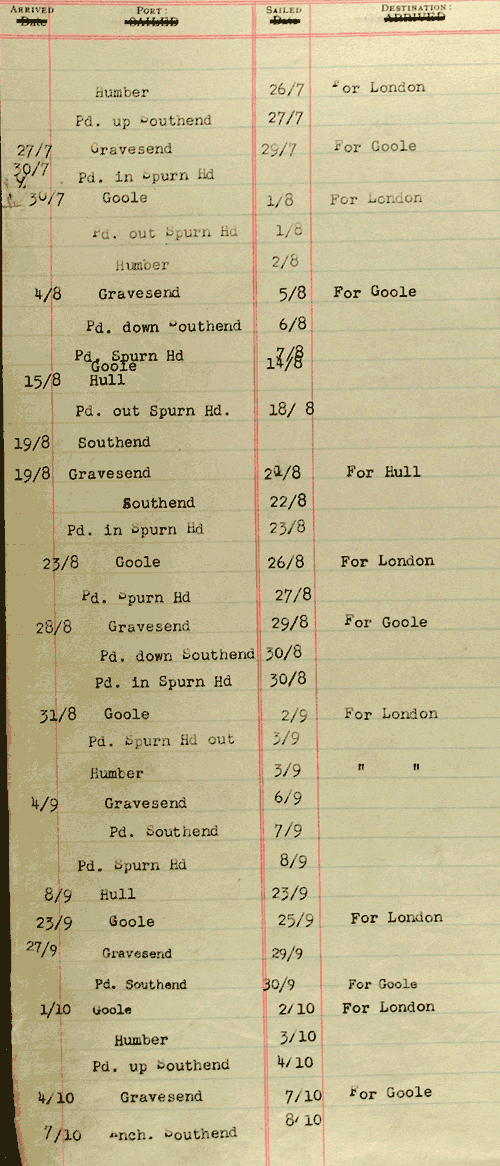 ARRIVED PORT: SAILED DESTINATION:
Date SAILED Date ARRIVED
Humber 26/7 For London
Pd. up Southend 27/7
27/7 Gravesend 29/7 For Goole
30/7 Pd. in Spurn Hd
30/7 Goole 1/8 For London
Pd. out Spurn Hd 1/8
Humber 2/8
4/8 Gravesend 5/8 For Goole
Pd. down Southend 6/8
Pd. Spurn Hd 7/8
Goole 14/8
15/8 Hull
Pd. out Spurn Hd. 18/ 8
19/8 Southend
19/8 Gravesend 21/8 For Hull
Southend 22/8
Pd. in Spurn Hd 23/8
23/8 Goole 26/8 For London
Pd. Spurn Hd 27/8
28/8 Gravesend 29/8 For Goole
Pd. down Southend 30/8
Pd. in Spurn Hd 30/8
31/8 Goole 2/9 For London
Pd. Spurn Hd out 3/9
Humber 3/9 " "
4/9 Gravesend 6/9
Pd. Southend 7/9
Pd. Spurn Hd 8/9
8/9 Hull 23/9
23/9 Goole 25/9 For London
27/9 Gravesend 29/9
Pd. Southend 30/9 For Goole
1/10 Goole 2/10 For London
Humber 3/10
Pd. up Southend 4/10
4/10 Gravesend 7/10 For Goole
8/10
7/10 Anch. Southend